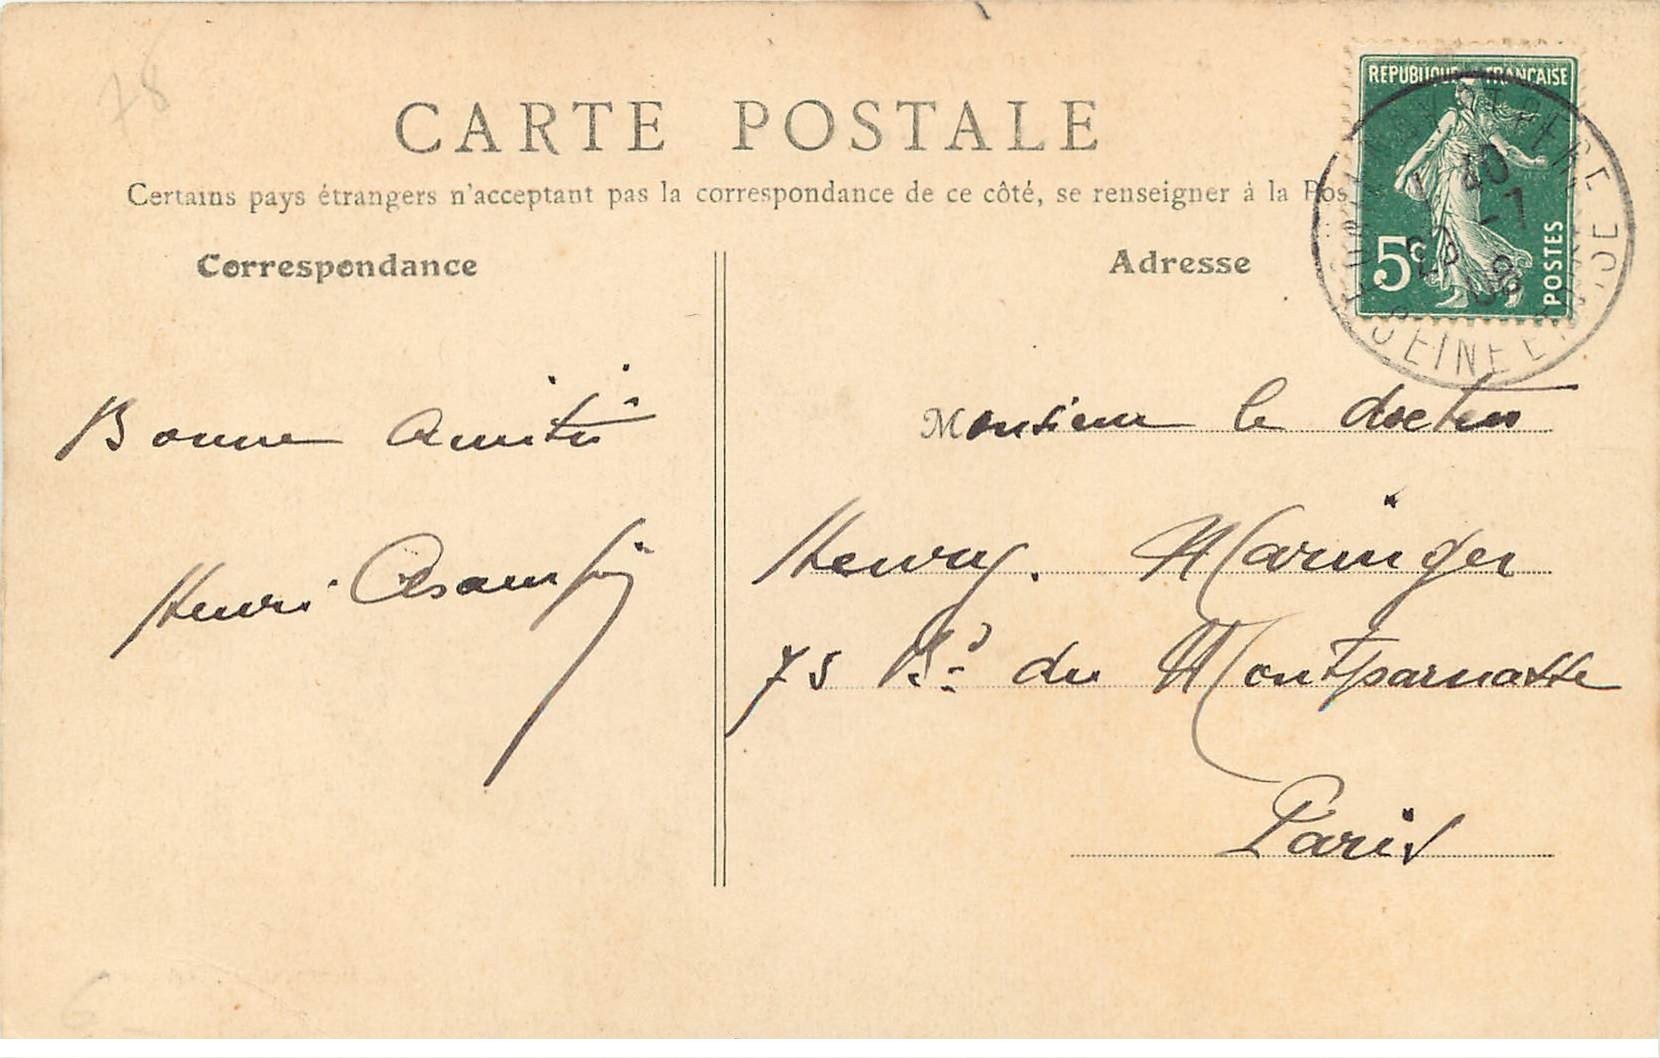 78
CARTE POSTALE
Certains pays étrangers n'acceptant pas la correspondance de ce côté, se renseigner à la Pos
REPUBLIQUE FRANÇAISE
5c
POSTES
SEINE ET OISE
10
-7
08
Correspondance
Adresse
Bonne amitié
Henri
Monsieur le docteur
Henry. Maringer
75 Bd du Montparnasse
Paris